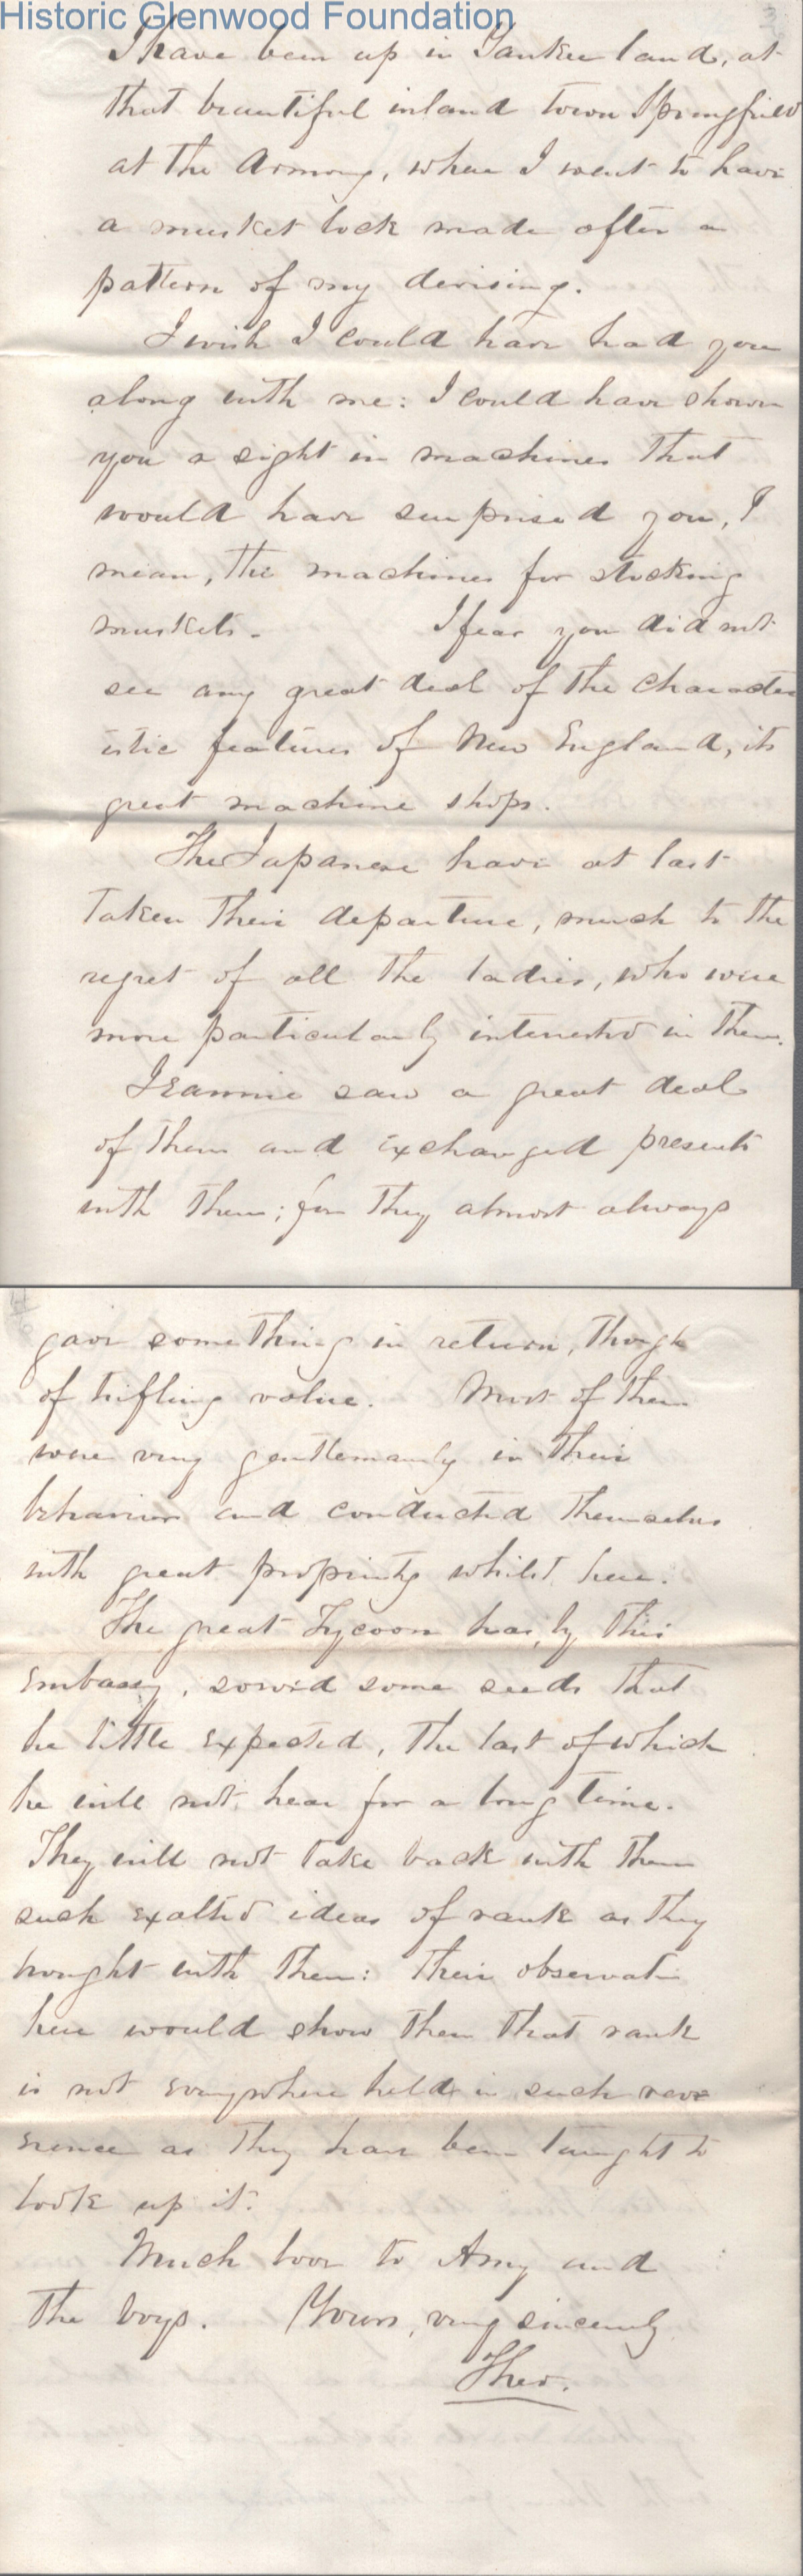 Historic Glenwood Foundation
3
I have been up in Yankee land, at
that beautiful inland town Springfield
at the Armory, where I went to have
a musket lock made after a
pattern of my devising.
I wish I could have had you
along with me: I could have shown
you a sight in machines that
would have surprised you, I
mean, the machines for stocking
muskets. I fear you did not
see any great deal of the character
istic features of New England, its
great machine shops.
The Japanese have at last
taken their departure, much to the
regret of all the ladies, who were
more particularly interested in them.
Jeannie saw a great deal
of them and exchanged presents
with them; for they almost always
gave something in return, though
of trifling value. Most of them
were very gentlemanly in their
behavior and conducted themselves
with great propriety whilst here.
The great Tycoon has, by this
Embassy, sowed some seeds that
he little expected, the last of which
he will not hear for a long time.
They will not take back with them
such exalted ideas of rank as they
brought with them: their observati
here would show them that rank
is not everywhere held in such reve
erence as they have been taught to
look up it.
Much love to Amy and
the boys. Yours, very sincerely
Theo.